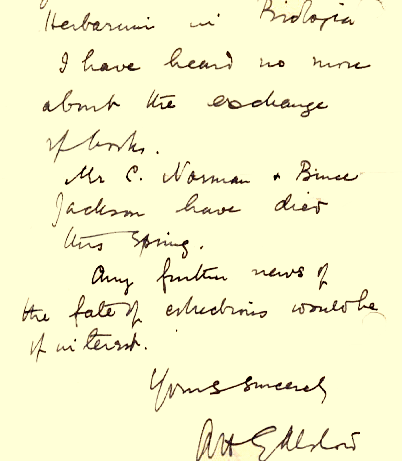 Herbarium in Biologia
I have heard no more
about the exchange
of books.
Mr C. Norman & Bruce
Jackson have died
this Spring.
Any further news of
the fate of collections would be
of interest.
Yours sincerely
A H G Alston